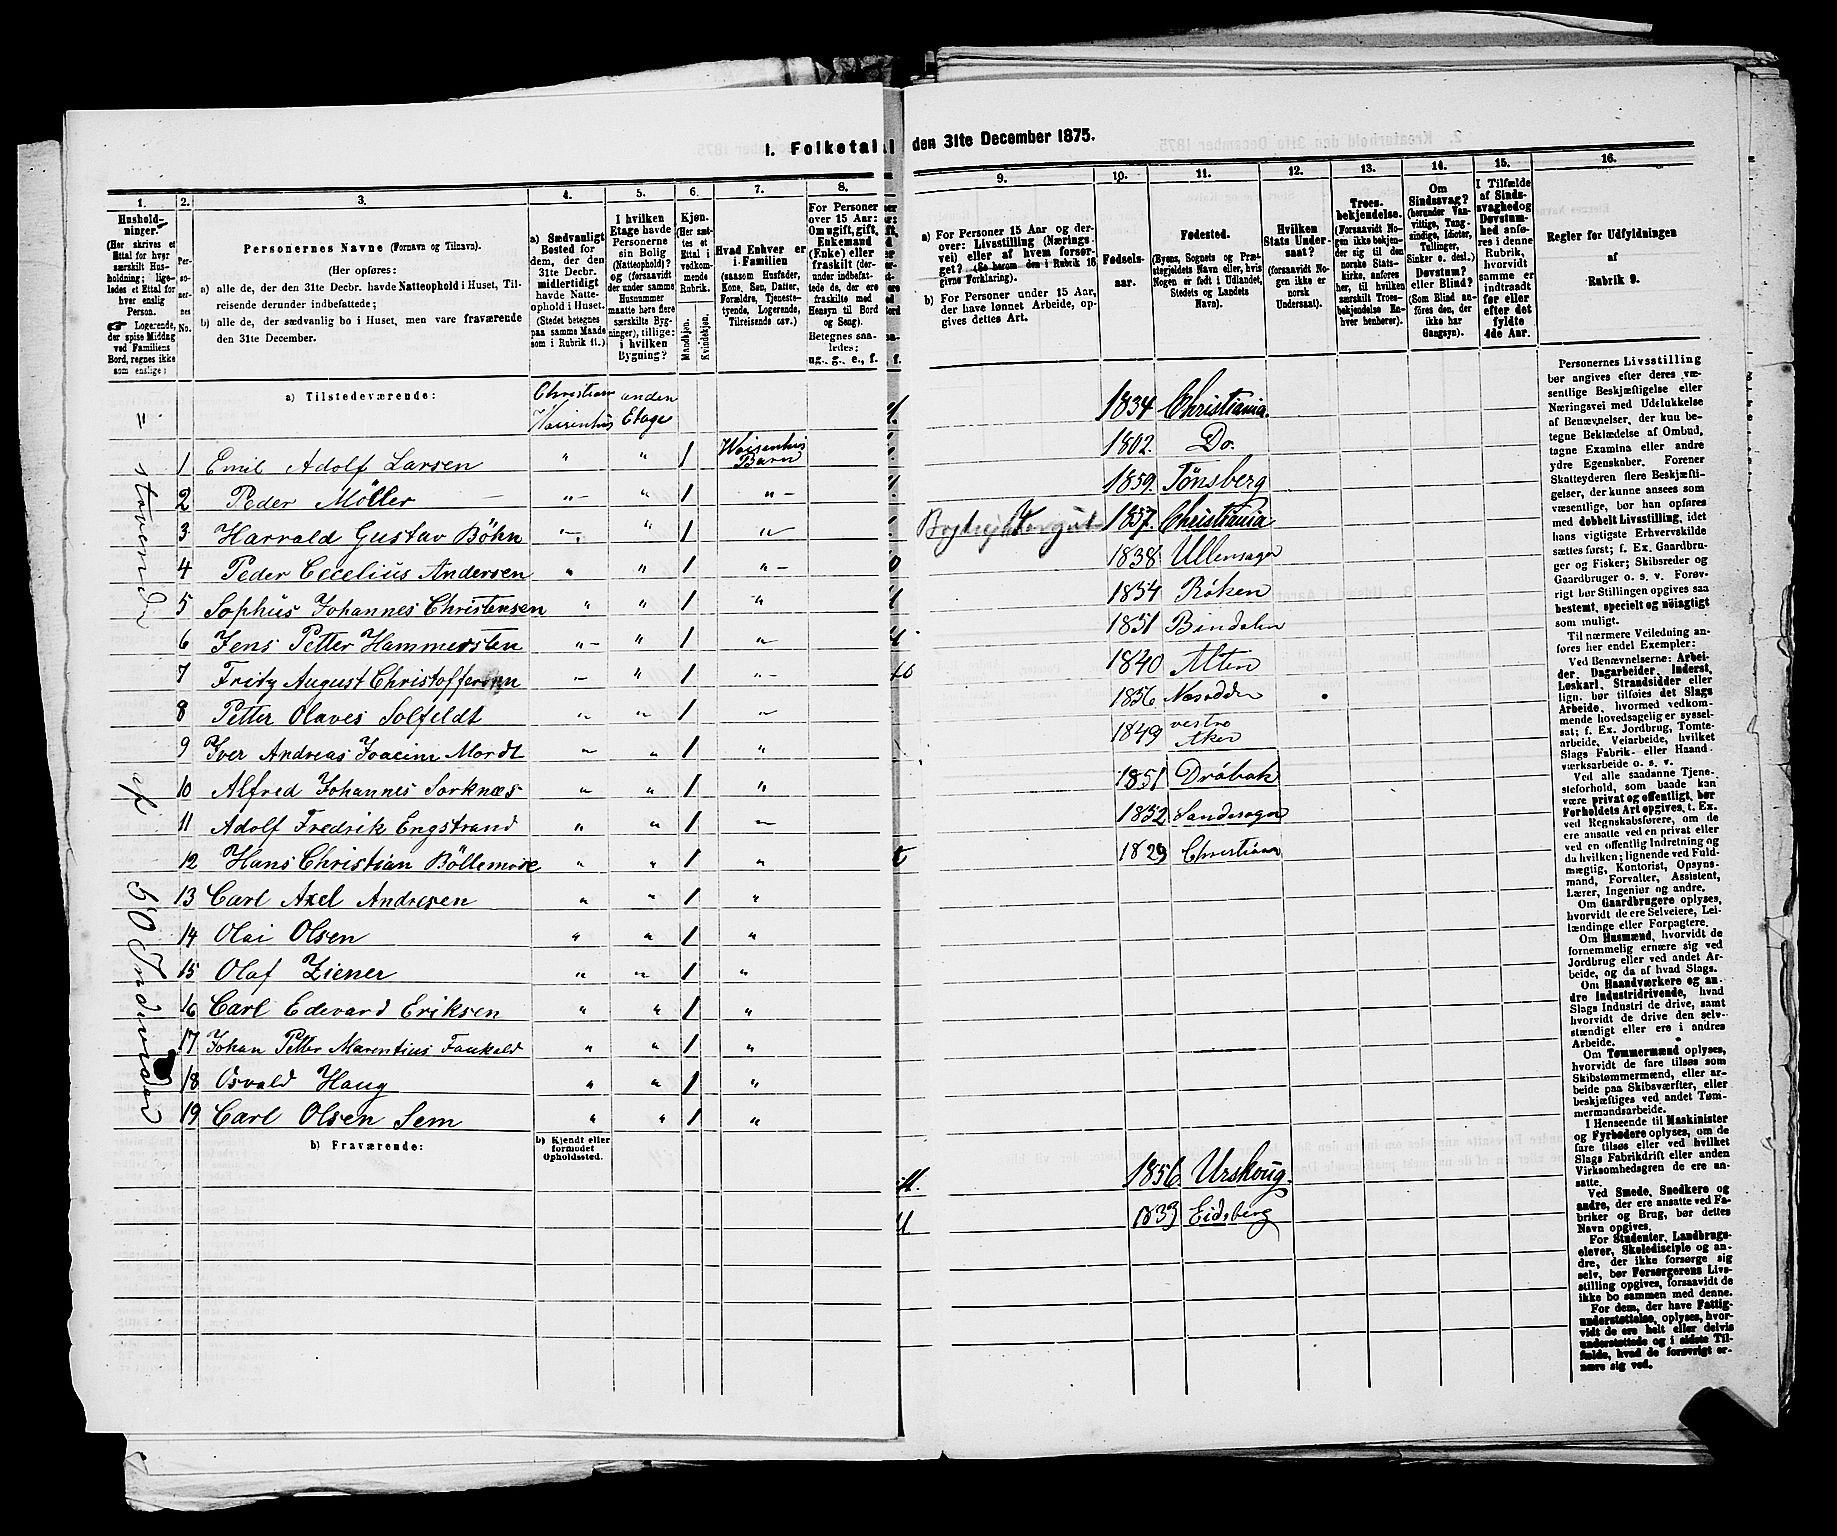 I. Folketal den 31te December 1875.
1. 2. 3. 4. 5. 6. 7. 8.
Husholdninger. (Her skrives et Ettal for hver særskilt Husholdning; ligeledes et Ettal for hver enslig Person. Logerende, der spise Middag ved Familiens Bord, regnes ikke som enslige;
Personernes No.
Personernes Navne (Fornavn og Tilnavn).
(Her opføres:
a) alle de, der den 31te Decbr. havde Natteophold i Huset, Tilreisende derunder indbefattede;
b) alle de, der sædvanlig bo i Huset, men vare fraværende den 31te December.
a) Sædvanligt Bosted for dem, der den 31te Decbr. midlertidigt havde Natteophold i Huset. (Stedet betegnes paa samme Maade som i Rubrik 11.)
I hvilken Etage havde Personerne sin Bolig (Natteophold)? og (forsaavidt der under samme Husnummer maatte høre flere særskilte Bygninger), tillige: i hvilken Bygning?
Kjøn. (Her sættes et Ettal i vedkommende Rubrik.
Mandkjøn. Kvindekjøn.
Hvad Enhver er i Familien (saasom Husfader, Kone, Søn, Datter, Forældre, Tjenestetyende, Logerende, Tilreisende osv.)
For Personer over 15 Aar: Om ugift, gift, Enkemand (Enke) eller fraskilt (derunder indbefattede de, der ere fraskilte med Hensyn til Bord og Seng). Betegnes saaledes; ug., g., e., f.
a) Tilstedeværende: Christiania anden
Waisenhus Etage
1 Emil Adolf Larsen " " 1 Waisenhus Barn
2 Peder Möller " " 1 "
3 Harrald Gustav Böhn " " 1 "
4 Peder Cecelius Andersen " " 1 "
5 Sophus Johannes Christensen " " 1 "
6 Jens Petter Hammersten " " 1 "
7 Fritz August Christoffersen " " 1 "
8 Petter Olaves Solfeldt " " 1 "
9 Iver Andreas Joacim Mordt " " 1 "
10 Alfred Johannes Sorknæs " " 1 "
11 Adolf Fredrik Engstrand " " 1 "
12 Hans Christian Böllemose " " 1 "
13 Carl Axel Andresen " " 1 "
14 Olai Olsen " " 1 "
15 Olaf Ziener " " 1 "
16 Carl Edevard Eriksen " " 1 "
17 Johan Petter Marentius Faukald " " 1 "
18 Osvald Haug " " 1 "
19 Carl Olsen Sem " " 1 "
b) Fraværende: b) Kjendt eller formodet Opholdssted.
= stavender af 50 Individer
9. 10. 11. 12. 13. 14. 15. 16.
a) For Personer 15 Aar og derover: Livsstilling (Næringsvei) eller af hvem forsørget? (Se herom den i Rubrik 16 givne Forklaring).
b) For Personer under 15 Aar, der have lønnet Arbeide, opgives dettes Art.
Fødselsaar.
Fødested. (Byens, Sognets og Præstegjeldets Navn eller, hvis Nogen er født i Udlandet, Stedets og Landets Navn).
Hvilken Stats Undersaat? (forsaavidt Nogen ikke er norsk Undersaat).
Troesbekjendelse. (Forsaavidt Nogen ikke bekjender sig til den norske Statskirke, anføres her, til hvilken særskilt Troesbekjendelse Enhver henhører).
Om Sindssvag? (herunder Vanvittige, Tungsindige, Idioter, Tullinger, Sinker o. desl.) Døvstum? eller Blind? (Som Blind anføres den, der ikke har Gangsyn).
I Tilfælde af Sindssvaghed og Døvstumhed anføres i denne Rubrik, hvorvidt samme er indtraadt før eller efter det fyldte 4de Aar.
Regler for Udfyldningen af Rubrik 9.
1834 Christiania.
1802. Do.
1859. Tønsberg
1857. Christiania
1838 Ullensager
1854 Röken
1851 Bindalen
1840 Alten
1856 Nesodden
1849 vestre Aker
1851 Dröbak
1852 Sandesogn
1829 Christiania
1856. Urskoug.
1833 Eidsberg
Personernes Livsstilling bør angives efter deres væsentlige Beskjæftigelse eller Næringsvei med Udelukkelse af Benævnelser, der kun betegne Beklædelse af Ombud, tagne Examina eller andre ydre Egenskaber. Forener Skatteyderen flere Beskjæftigelser, der kunne ansees som væsentlige, bør han opføres med dobbelt Livsstilling, idet hans vigtigste Erhvervskilde sættes først; f. Ex. Gaardbruger og Fisker; Skibsreder og Gaardbruger o. s. v. Forøvrigt bør Stillingen opgives saa bestemt, specielt og nøiagtigt som muligt.
Til nærmere Veiledning anføres her endel Exempler:
Ved Benævnelserne: Arbeider, Dagarbeider, Inderst, Løskarl, Strandsidder eller lign. bør tilføies det Slags Arbeide, hvormed vedkommende hovedsagelig er sysselsat; f. Ex. Jordbrug, Tomtearbeide, Veiarbeide, hvilket Slags Fabrik- eller Haandværksarbeide o. s. v.
Ved alle saadanne Tjenesteforhold, som baade kan være privat og offentligt, bør Forholdets Art opgives, t. Ex. ved Regnskabsførere, om de ere ansatte ved en privat eller ved en offentlig Indretning og da hvilken; lignende ved Fuldmægtig, Kontorist, Opsynsmand, Forvalter, Assistent, Lærer, Ingeniør og andre.
Om Gaardbrugere oplyses, hvorvidt de ere Selveiere, Leilændinge eller Forpagtere.
Om Husmænd, hvorvidt de fornemmelig ernære sig ved Jordbrug eller ved andet Arbeide, og da af hvad Slags.
Om Haandværkere og andre Industridrivende, hvad Slags Industri de drive, samt hvorvidt de drive den selvstændigt eller ere i andres Arbeide.
Om Tømmermænd oplyses, hvorvidt de fare tilsøs som Skibstømmermænd, eller arbeide paa Skibsværfter, eller beskjæftiges ved andet Tømmermandsarbeide.
I Henseende til Maskinister og Fyrbødere oplyses, om de fare tilsøs eller ved hvilket Slags Fabrikdrift eller anden Virksomhedsgren de ere ansatte.
Ved Smede, Snedkere og andre, der ere ansatte ved Fabriker og Brug, bør dettes Navn opgives.
For Studenter, Landbrugselever, Skoledisciple og andre, der ikke forsørge sig selv, bør Forsørgerens Livsstilling opgives, forsaavidt de ikke bo sammen med denne.
For dem, der have Fattigunderstøttelse, oplyses, hvorvidt de ere helt eller delvis understøttede og i sidste Tilfælde, hvad de forøvrigt ernære sig ved.